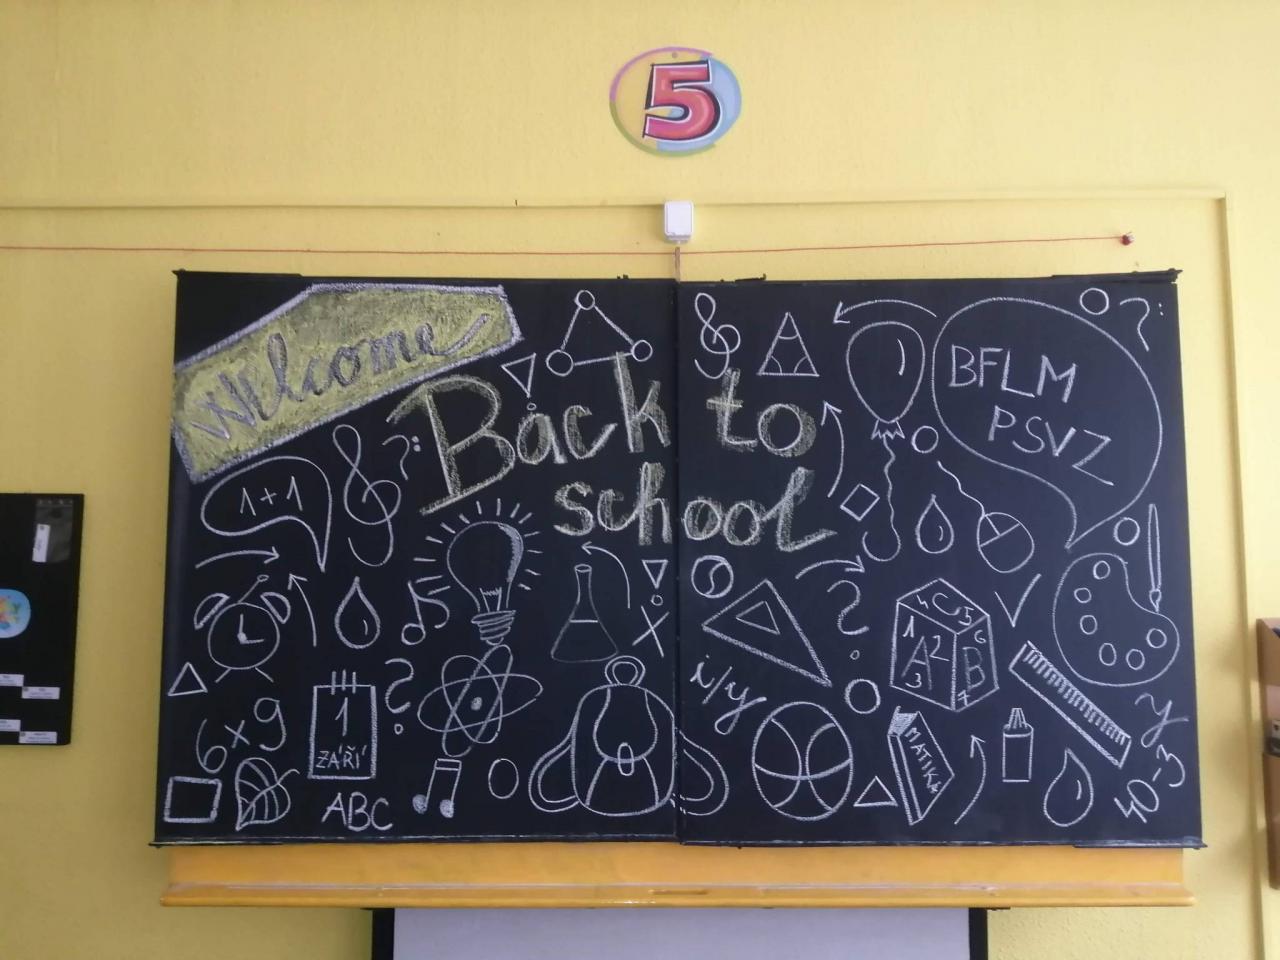 5
Welcome
Back to
school
BFLM
PSVZ
?:
1+1
?:
?
i/y
4 C 5
1 A 2 3
6 B 7
6x9
1
ZÁŘÍ
?
ABC
MATIKA
y
40-3